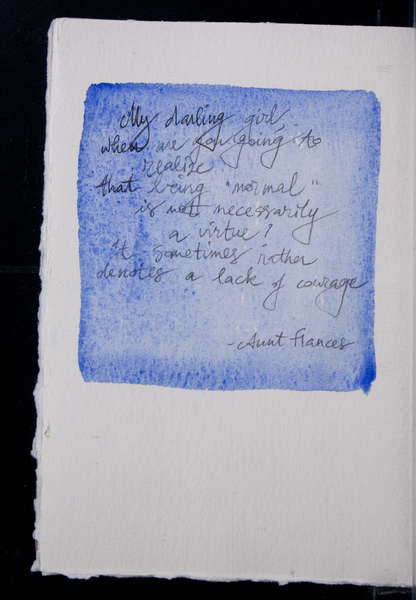 My darling girl,
when are you going to
realize
that being "normal"
is not necessarily
a virtue?
it sometimes rather
denotes a lack of courage
-Aunt Frances